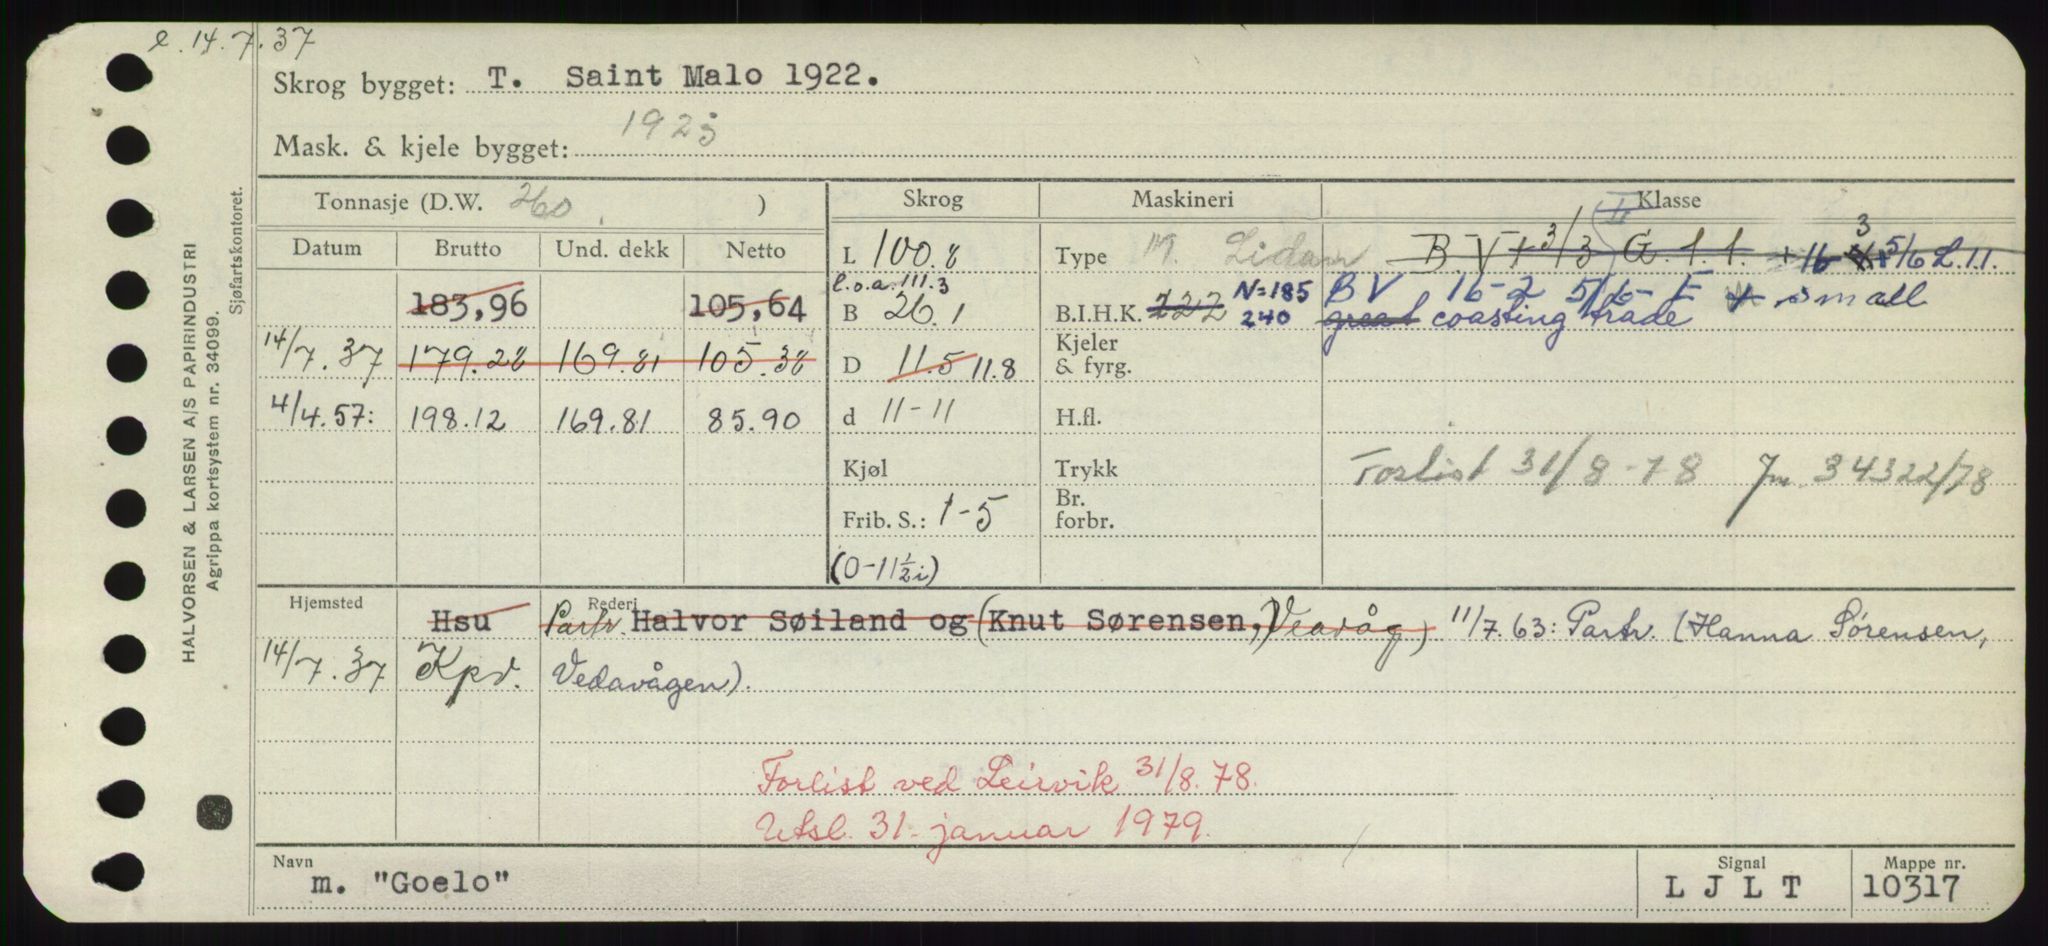 e. 14.7.37
Skrog bygget: T. Saint Malo 1922.
Mask. & kjele bygget: 1923
Tonnasje (D.W. 260 )
Skrog
Maskineri
Klasse
Datum Brutto Und. dekk Netto
183,96 105,64
14/7.37 179.28 169.81 105.38
4/4.57: 198.12 169.81 85.90
L 100.8
l.o.a. 111.3
B 26.1
D 11.5 11.8
d 11-11
Kjøl
Frib. S.: 1-5
(0-11½i)
Type M.
B.I.H.K. 222 N=185
240
Kjeler
& fyrg.
H.fl.
Trykk
Br.
forbr.
II
BV + 3/3 G. 1.1. 16 3 5/6 L.11.
BV 16-2 5/6-E + small
great coasting trade
Forlist 31/8-78 Jn. 34322/78
Hjemsted Rederi
Hsu Partr. Halvor Søiland og (Knut Sørensen, Veavåg) 11/7.63: Partr. (Hanna Sørensen,
14/7.37 Kpv. Vedavågen).
Forlist ved Leirvik 31/8.78.
Utsl. 31. januar 1979.
Navn
m. "Goelo"
Signal
LJLT
Mappe nr.
10317
HALVORSEN & LARSEN A/S PAPIRINDUSTRI
Agrippa kortsystem nr. 34099.
Sjøfartskontoret.